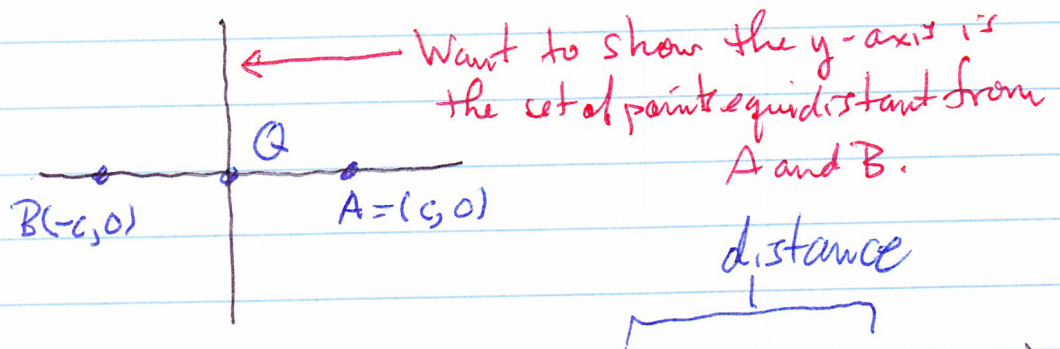 Want to show the y-axis is
the set of points equidistant from
A and B.
Q
B(-c,0)
A=(c,0)
distance